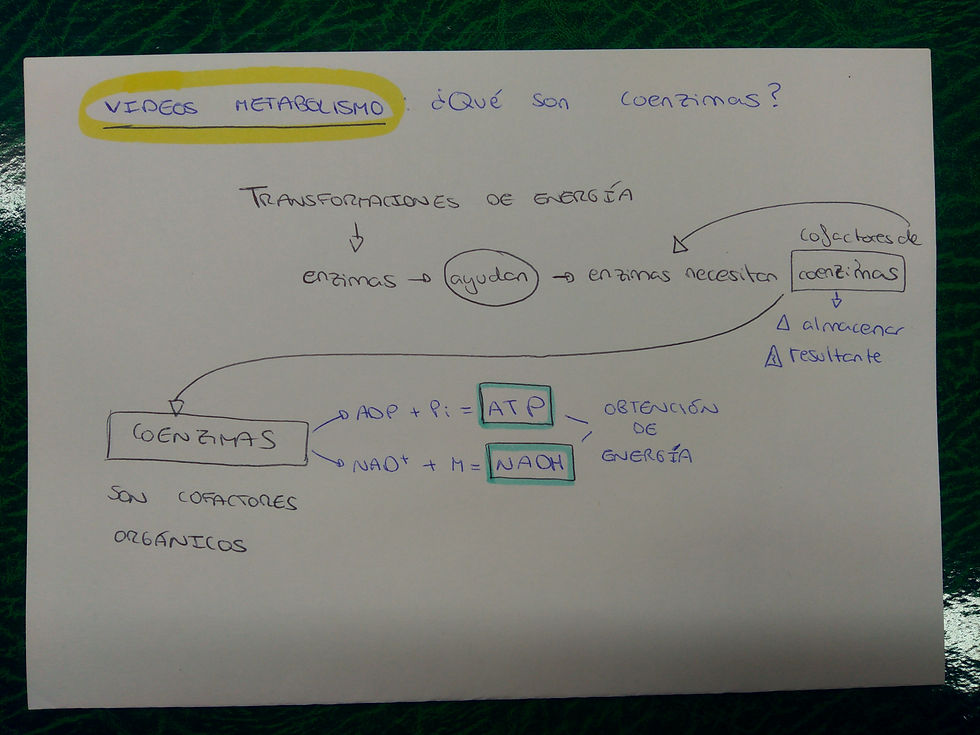 VIDEOS METABOLISMO: ¿Qué son coenzimas?
TRANSFORMACIONES DE ENERGÍA
cofactores de
enzimas → ayudan → enzimas necesitan coenzimas
△ almacenar
△ resultante
COENZIMAS
ADP + Pi = ATP
OBTENCIÓN
DE
ENERGÍA
NAD+ + M = NADH
SON COFACTORES
ORGÁNICOS